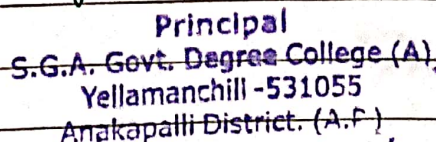 Principal
S.G.A. Govt. Degree College (A)
Yellamanchili -531055
Anakapalli District. (A.P)